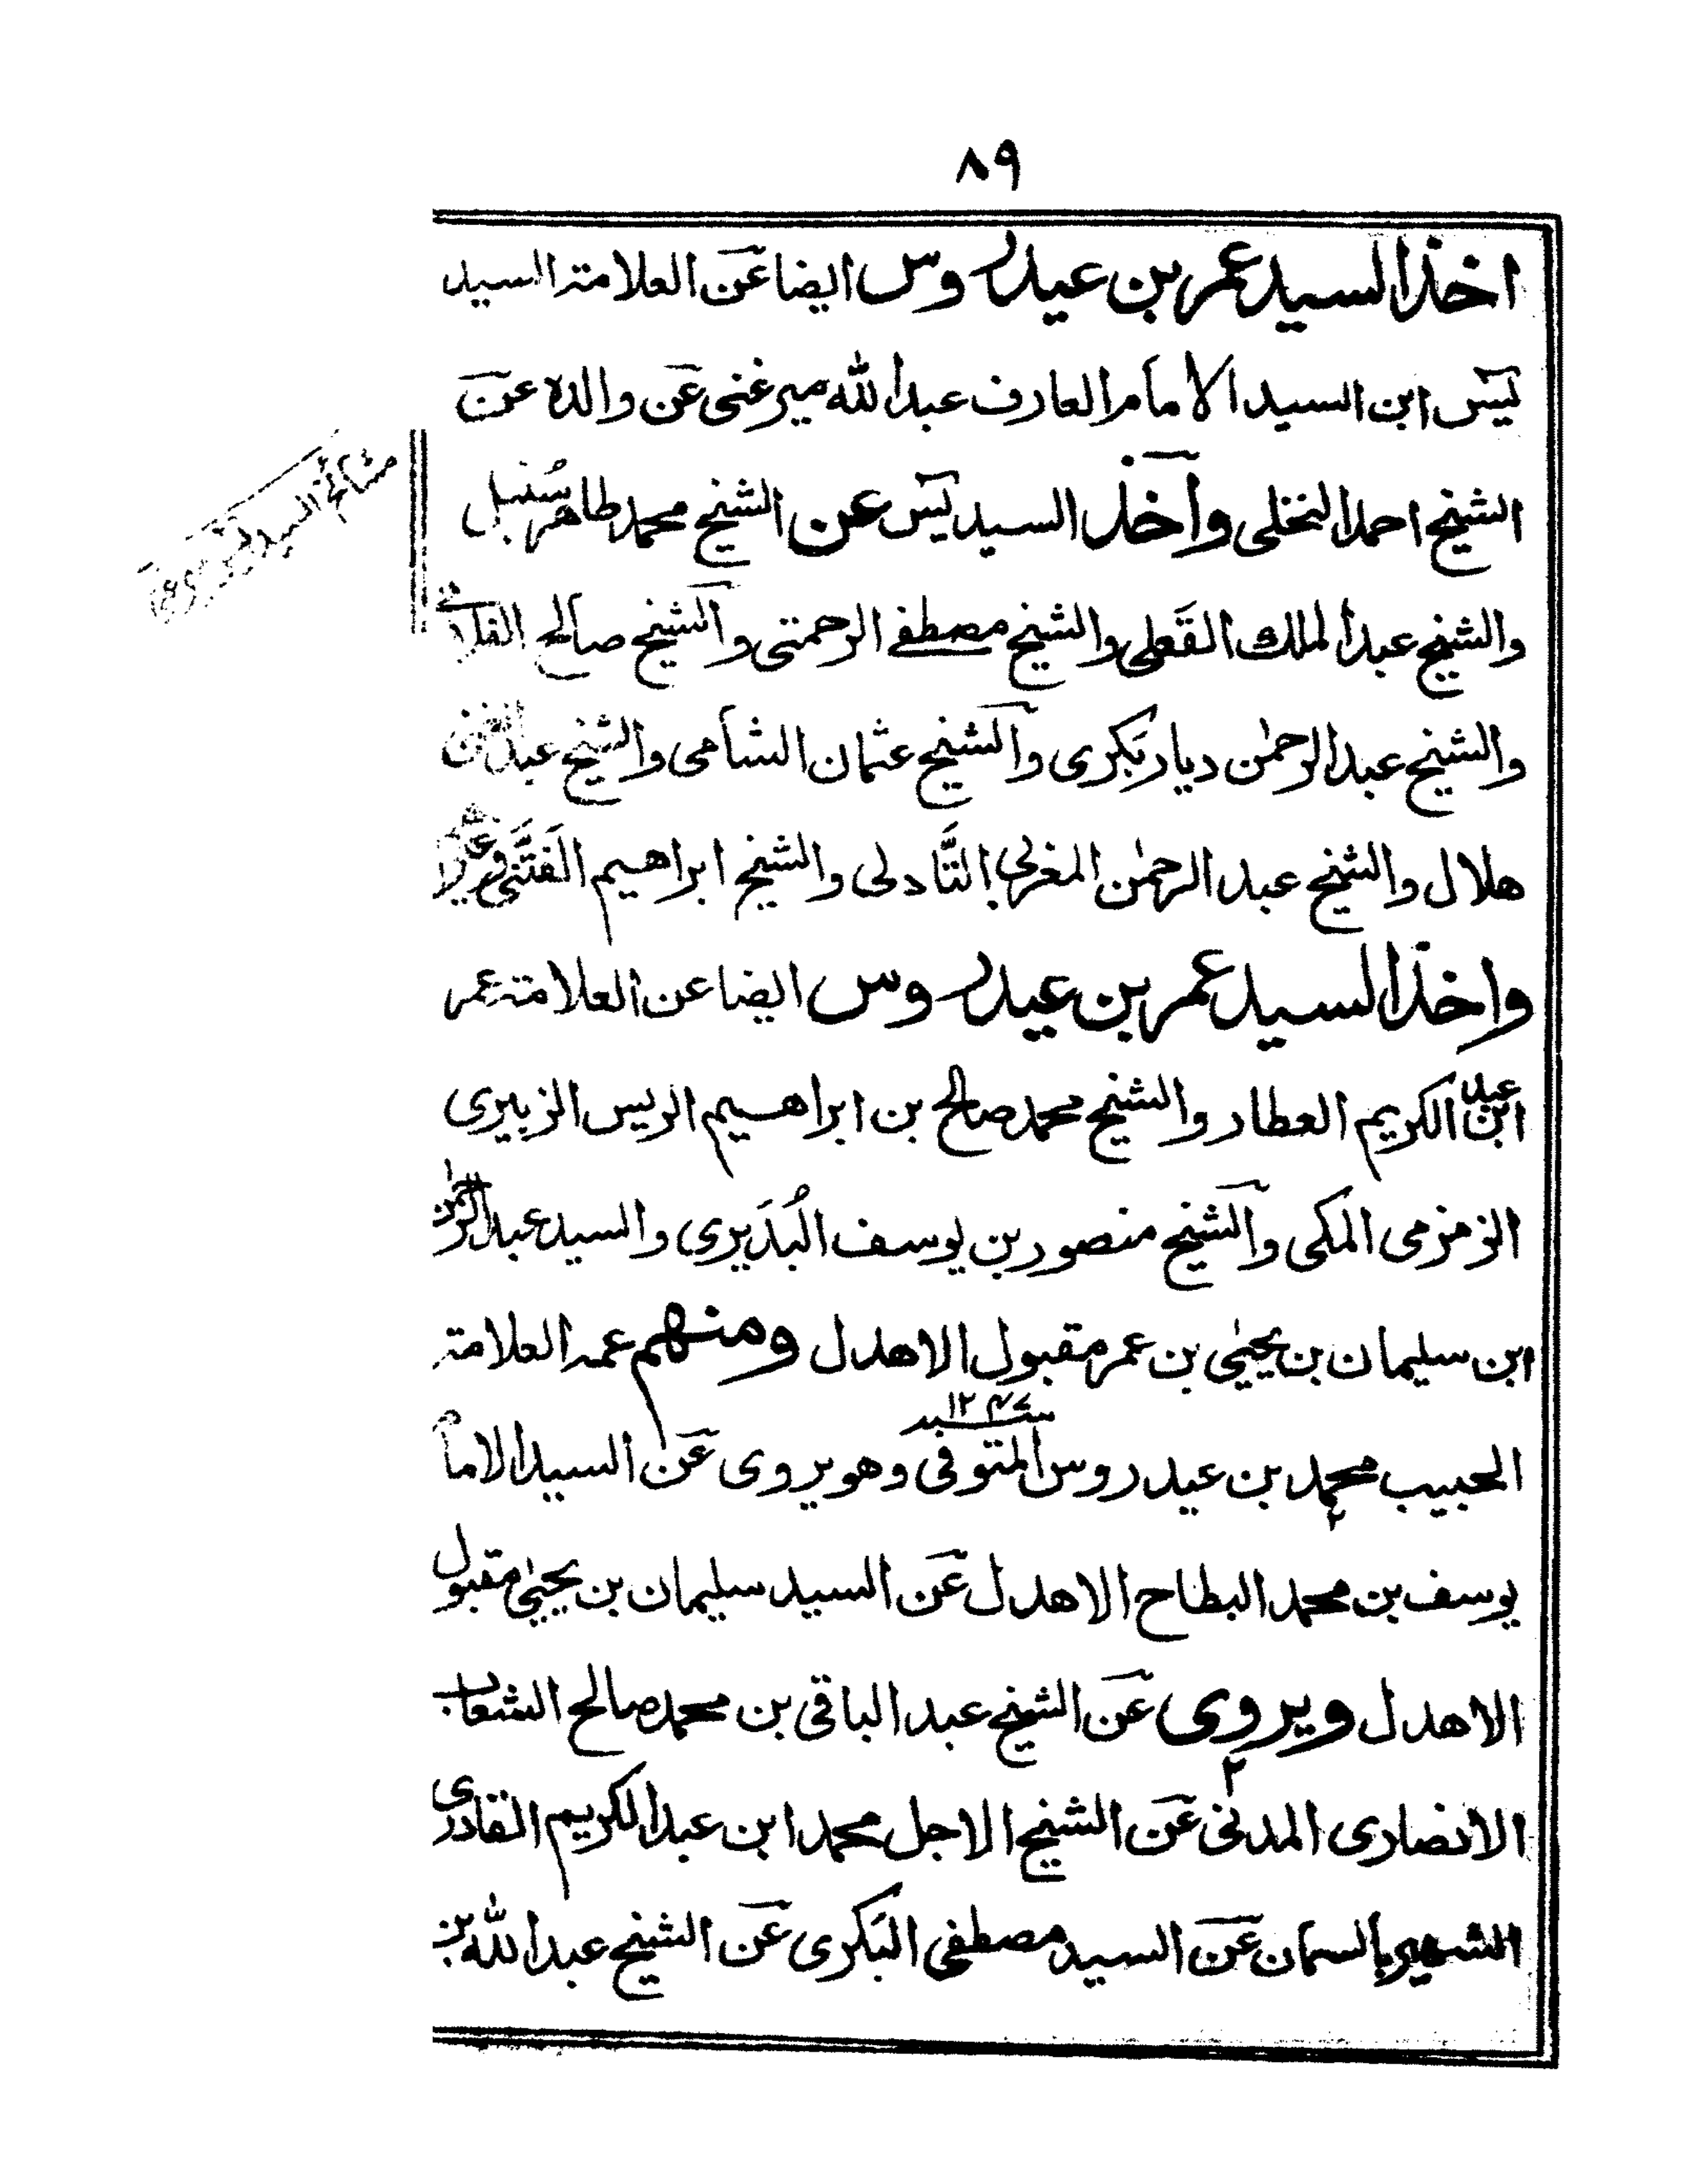 ٨٩
اخذ السيد عمر بن عيدروس ايضا عن العلامة السيد
يٰسٓ ابن السيد الامام العارف عبد الله ميرغنى عن والده عن
الشيخ احمد النخلى وأخذ السيد يٰسٓ عن الشيخ محمد طاهر سُنبل
والشيخ عبد الملك القَعلى والشيخ مصطفے الرحمتى والشيخ صالح الفلانے
والشيخ عبد الرحمٰن ديار بَكرى والشيخ عثمان الشامى والشيخ
هلال والشيخ عبد الرحمٰن المغربى التَّادلى والشيخ ابراهيم الفَتَّنى
واخذ السيد عمر بن عيدروس ايضا عن العلامة عمر
ابن عبد الكريم العطار والشيخ محمد صالح بن ابراهيم الريس الزبيرى
الزمزمى المكى والشيخ منصور بن يوسف البُدَيرى والسيد عبد الرحمٰن
ابن سليمان بن يحيٰى بن عمر مقبول الاهدل ومنهم عمه العلامة
الحبيب محمد بن عيدروس المتوفى سنة ١٢٤٧ وهو يروى عن السيد الامام
يوسف بن محمد البطاح الاهدل عن السيد سليمان بن يحيٰى مقبول
الاهدل ويروى عن الشيخ عبد الباقى بن محمد صالح الشعاب
الانصارى المدنى عن الشيخ الاجل محمد ابن عبد الكريم القادرى
الشهير بالسمان عن السيد مصطفى البَكرى عن الشيخ عبد الله بن
مشائخ السيد